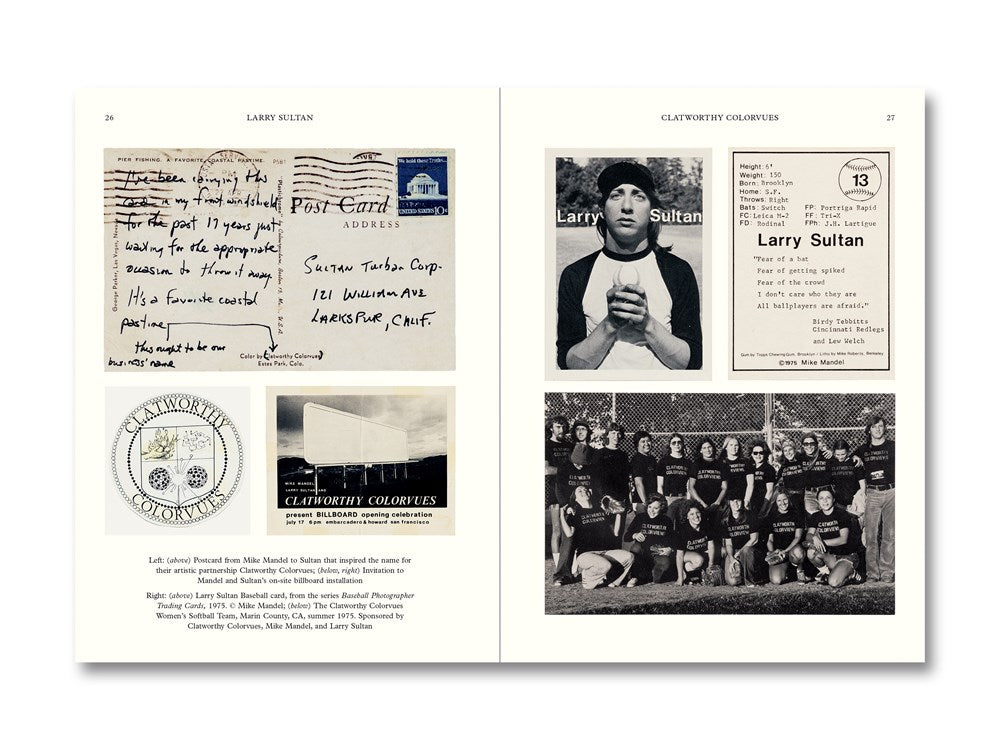 26
LARRY SULTAN
PIER FISHING. A FAVORITE COASTAL PASTIME.
P581
I've been carrying this
card in my front windshield
for the past 17 years just
waiting for the appropriate
occasion to throw it away.
It's a favorite coastal
pastime
this ought to be our
business' name
George Parker, Las Vegas, Nevada
Color by Clatworthy Colorvues
Estes Park, Colo.
Post Card
ADDRESS
We hold these Truths...
UNITED STATES 10c
Sultan Turban Corp.
121 William Ave
Larkspur, Calif.
CLATWORTHY
COLORVUES
MIKE MANDEL
LARRY SULTAN AND
CLATWORTHY COLORVUES
present BILLBOARD opening celebration
july 17 6pm embarcadero & howard san francisco
Left: (above) Postcard from Mike Mandel to Sultan that inspired the name for
their artistic partnership Clatworthy Colorvues; (below, right) Invitation to
Mandel and Sultan's on-site billboard installation
Right: (above) Larry Sultan Baseball card, from the series Baseball Photographer
Trading Cards, 1975. © Mike Mandel; (below) The Clatworthy Colorvues
Women's Softball Team, Marin County, CA, summer 1975. Sponsored by
Clatworthy Colorvues, Mike Mandel, and Larry Sultan
CLATWORTHY COLORVUES
27
Larry Sultan
Height: 6'
Weight: 150
Born: Brooklyn
Home: S.F.
Throws: Right
Bats: Switch FP: Portriga Rapid
FC: Leica M-2 FF: Tri-X
FD: Rodinal FPh: J.H. Lartigue
13
Larry Sultan
"Fear of a bat
Fear of getting spiked
Fear of the crowd
I don't care who they are
All ballplayers are afraid."
Birdy Tebbitts
Cincinnati Redlegs
and Lew Welch
Gum by Topps Chewing Gum, Brooklyn / Litho by Mike Roberts, Berkeley
©1975 Mike Mandel
CLATWORTHY
COLORVUES